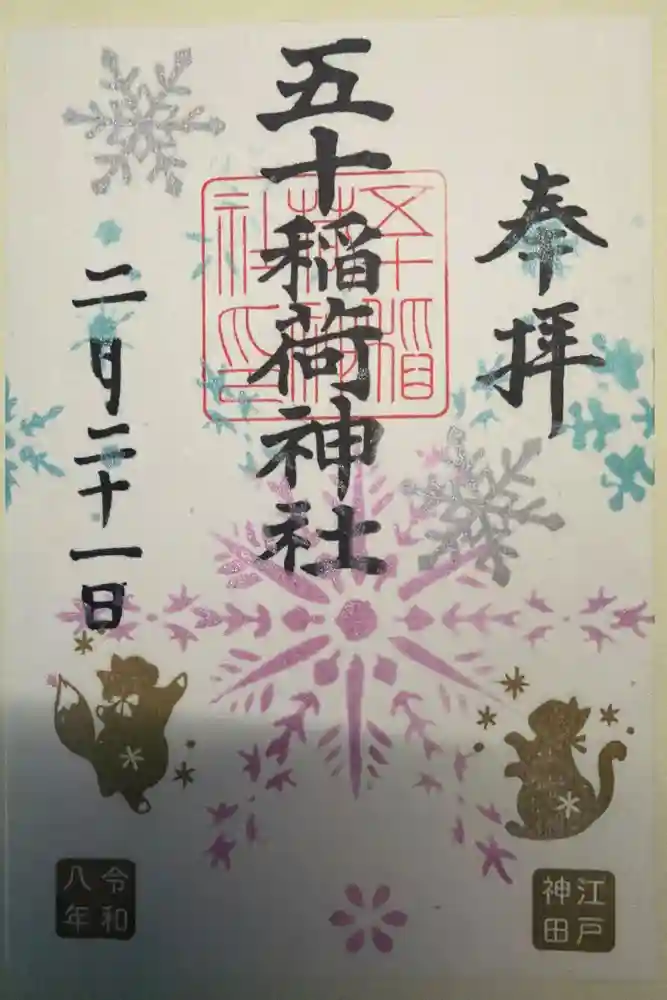 奉拝
五十稲荷神社
五十稲荷神社印
二月二十一日
江戸神田
令和八年